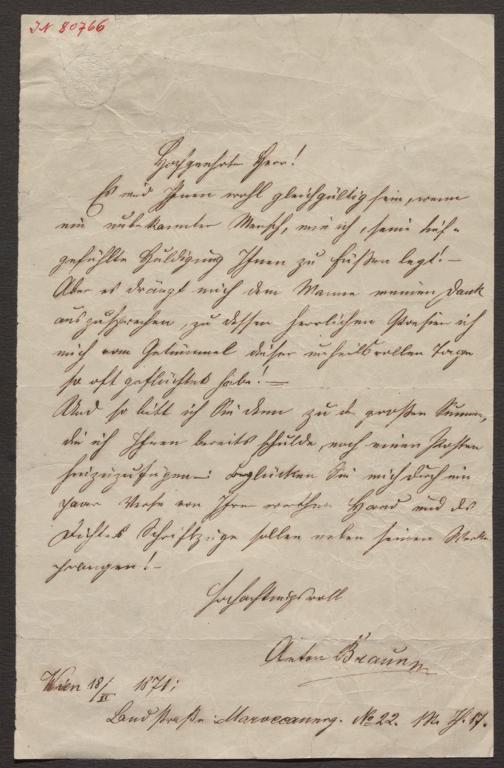 IN 80766
Hochgeehrter Herr!
Es wird Ihnen wohl gleichgültig sein, wenn
ein unbekannter Mensch, wie ich, seine tief-
gefühlte Huldigung Ihnen zu Füßen legt! —
Aber es drängt mich dem Manne meinen Dank
auszusprechen, zu dessen herrlichen Poesien ich
mich vom Getümmel dieser unheilvollen Tage
so oft geflüchtet habe! —
Und so bitt ich Sie denn zu der großen Summe,
die ich Ihnen bereits schulde, noch einen Posten
hinzuzufügen: beglücken Sie mich durch ein
paar Verse von Ihrer werthen Hand und des
Dichters Schriftzüge sollen neben seinen Werken
prangen! —
Hochachtungsvoll
Anton Braun
Wien 18/II 1871;
Landstraße Maroccanerg. No 22.